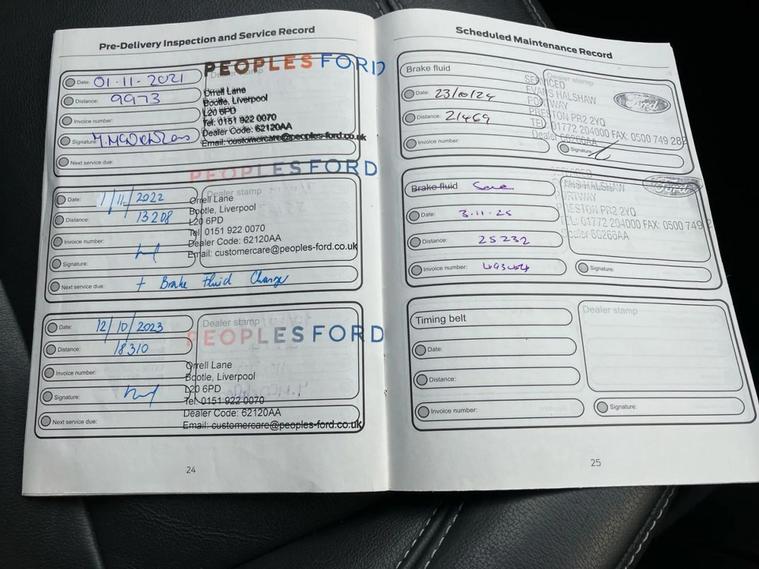 Pre-Delivery Inspection and Service Record
Date: 01-11-2021
Distance: 9973
Invoice number:
Signature:
Next service due:
PEOPLES FORD
Orrell Lane
Bootle, Liverpool
L20 6PD
Tel: 0151 922 0070
Dealer Code: 62120AA
Email: customercare@peoples-ford.co.uk
Date: 1/11/2022
Distance: 13208
Invoice number:
Signature:
Next service due: + Brake Fluid Change
PEOPLES FORD
Dealer stamp
Orrell Lane
Bootle, Liverpool
L20 6PD
Tel: 0151 922 0070
Dealer Code: 62120AA
Email: customercare@peoples-ford.co.uk
Date: 12/10/2023
Distance: 18310
Invoice number:
Signature:
Next service due:
Dealer stamp
PEOPLES FORD
Orrell Lane
Bootle, Liverpool
L20 6PD
Tel: 0151 922 0070
Dealer Code: 62120AA
Email: customercare@peoples-ford.co.uk
24
Scheduled Maintenance Record
Brake fluid
Date: 23/10/24
Distance: 21469
Invoice number:
Dealer stamp
SERVICED
EVANS HALSHAW
PRESTON PR2 2YQ
TEL: 01772 204000 FAX: 0500 749
Ford
Signature:
Brake fluid
Date: 3.11.25
Distance: 25232
Invoice number:
HALSHAW
PRESTON PR2 2YQ
TEL: 01772 204000 FAX: 0500 749
Ford
Signature:
Timing belt
Date:
Distance:
Invoice number:
Dealer stamp
Signature:
25